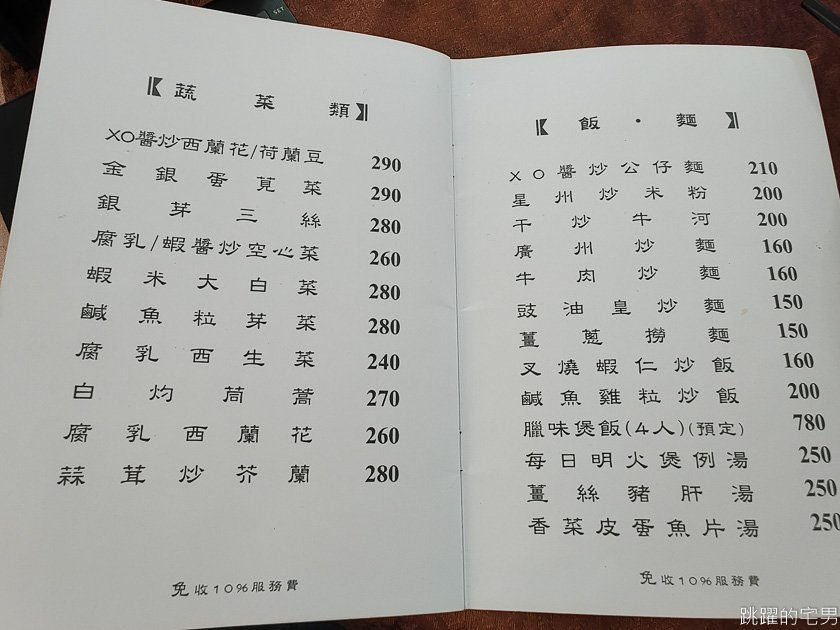 SET
【蔬菜類】
XO醬炒西蘭花/荷蘭豆 290
金銀蛋莧菜 290
銀芽三絲 280
腐乳/蝦醬炒空心菜 260
蝦米大白菜 280
鹹魚粒芽菜 280
腐乳西生菜 240
白灼茼蒿 270
腐乳西蘭花 260
蒜茸炒芥蘭 280
免收10%服務費
【飯·麵】
XO醬炒公仔麵 210
星州炒米粉 200
干炒牛河 200
廣州炒麵 160
牛肉炒麵 160
豉油皇炒麵 150
薑蔥撈麵 150
叉燒蝦仁炒飯 160
鹹魚雞粒炒飯 200
臘味煲飯(4人)(預定) 780
每日明火煲例湯 250
薑絲豬肝湯 250
香菜皮蛋魚片湯 250
免收10%服務費
跳躍的宅男